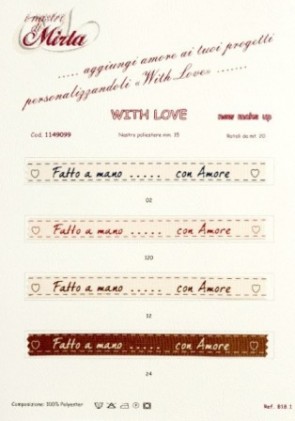 i nastri di
Mirta
..... aggiungi amore ai tuoi progetti
personalizzandoli «With Love» .......
WITH LOVE
new make up
Cod. 1149099
Nastro poliestere mm. 15
Rotoli da mt. 20
Fatto a mano ..... con Amore
02
Fatto a mano ..... con Amore
120
Fatto a mano ..... con Amore
12
Fatto a mano ..... con Amore
24
Composizione: 100% Polyester
Ref. 818.1